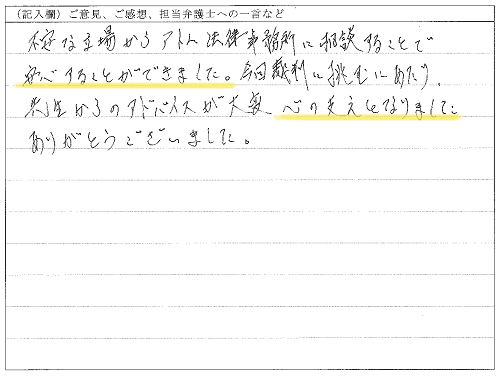 (記入欄) ご意見、ご感想、担当弁護士への一言など
不安な立場からアトム法律事務所に相談することで
安心することができました。今回裁判に挑むにあたり、
先生からのアドバイスが大変 心の支えとなりました
ありがとうございました。